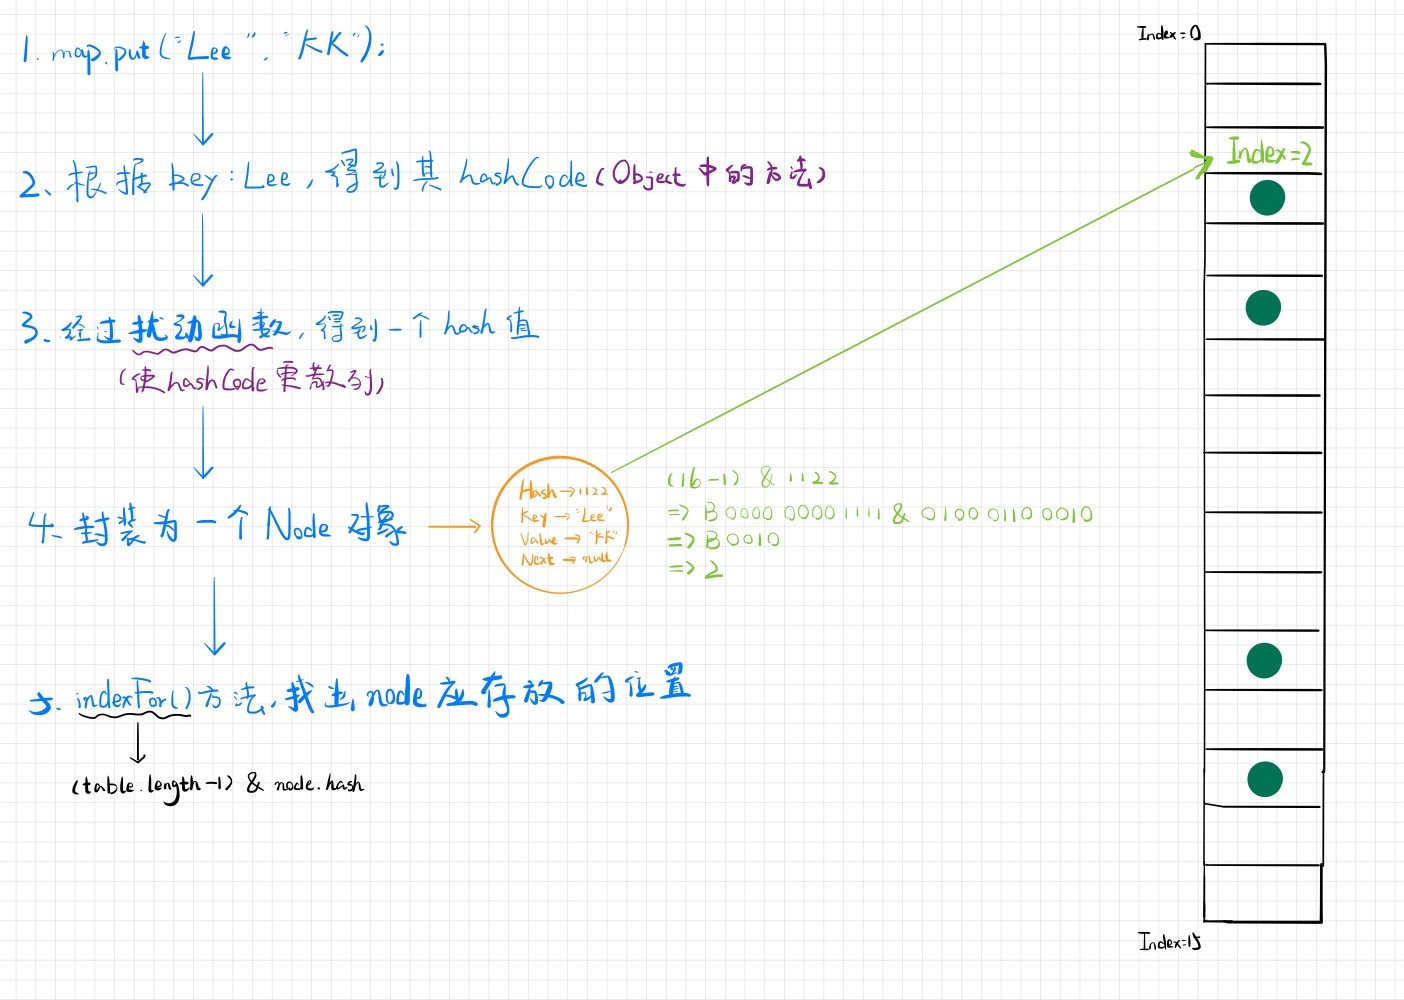 1. map.put("Lee", "KK");
2、根据 key:Lee,得到其 hashCode(Object 中的方法)
3、经过扰动函数,得到一个 hash 值
(使hashCode更散列)
4、封装为一个 Node 对象
Hash→1122
Key→"Lee"
Value→"KK"
Next→null
(16-1) & 1122
=> B 0000 0000 1111 & 0100 0110 0010
=> B 0010
=> 2
5. indexFor()方法,找出node应存放的位置
(table.length-1) & node.hash
Index=0
Index=2
Index=15